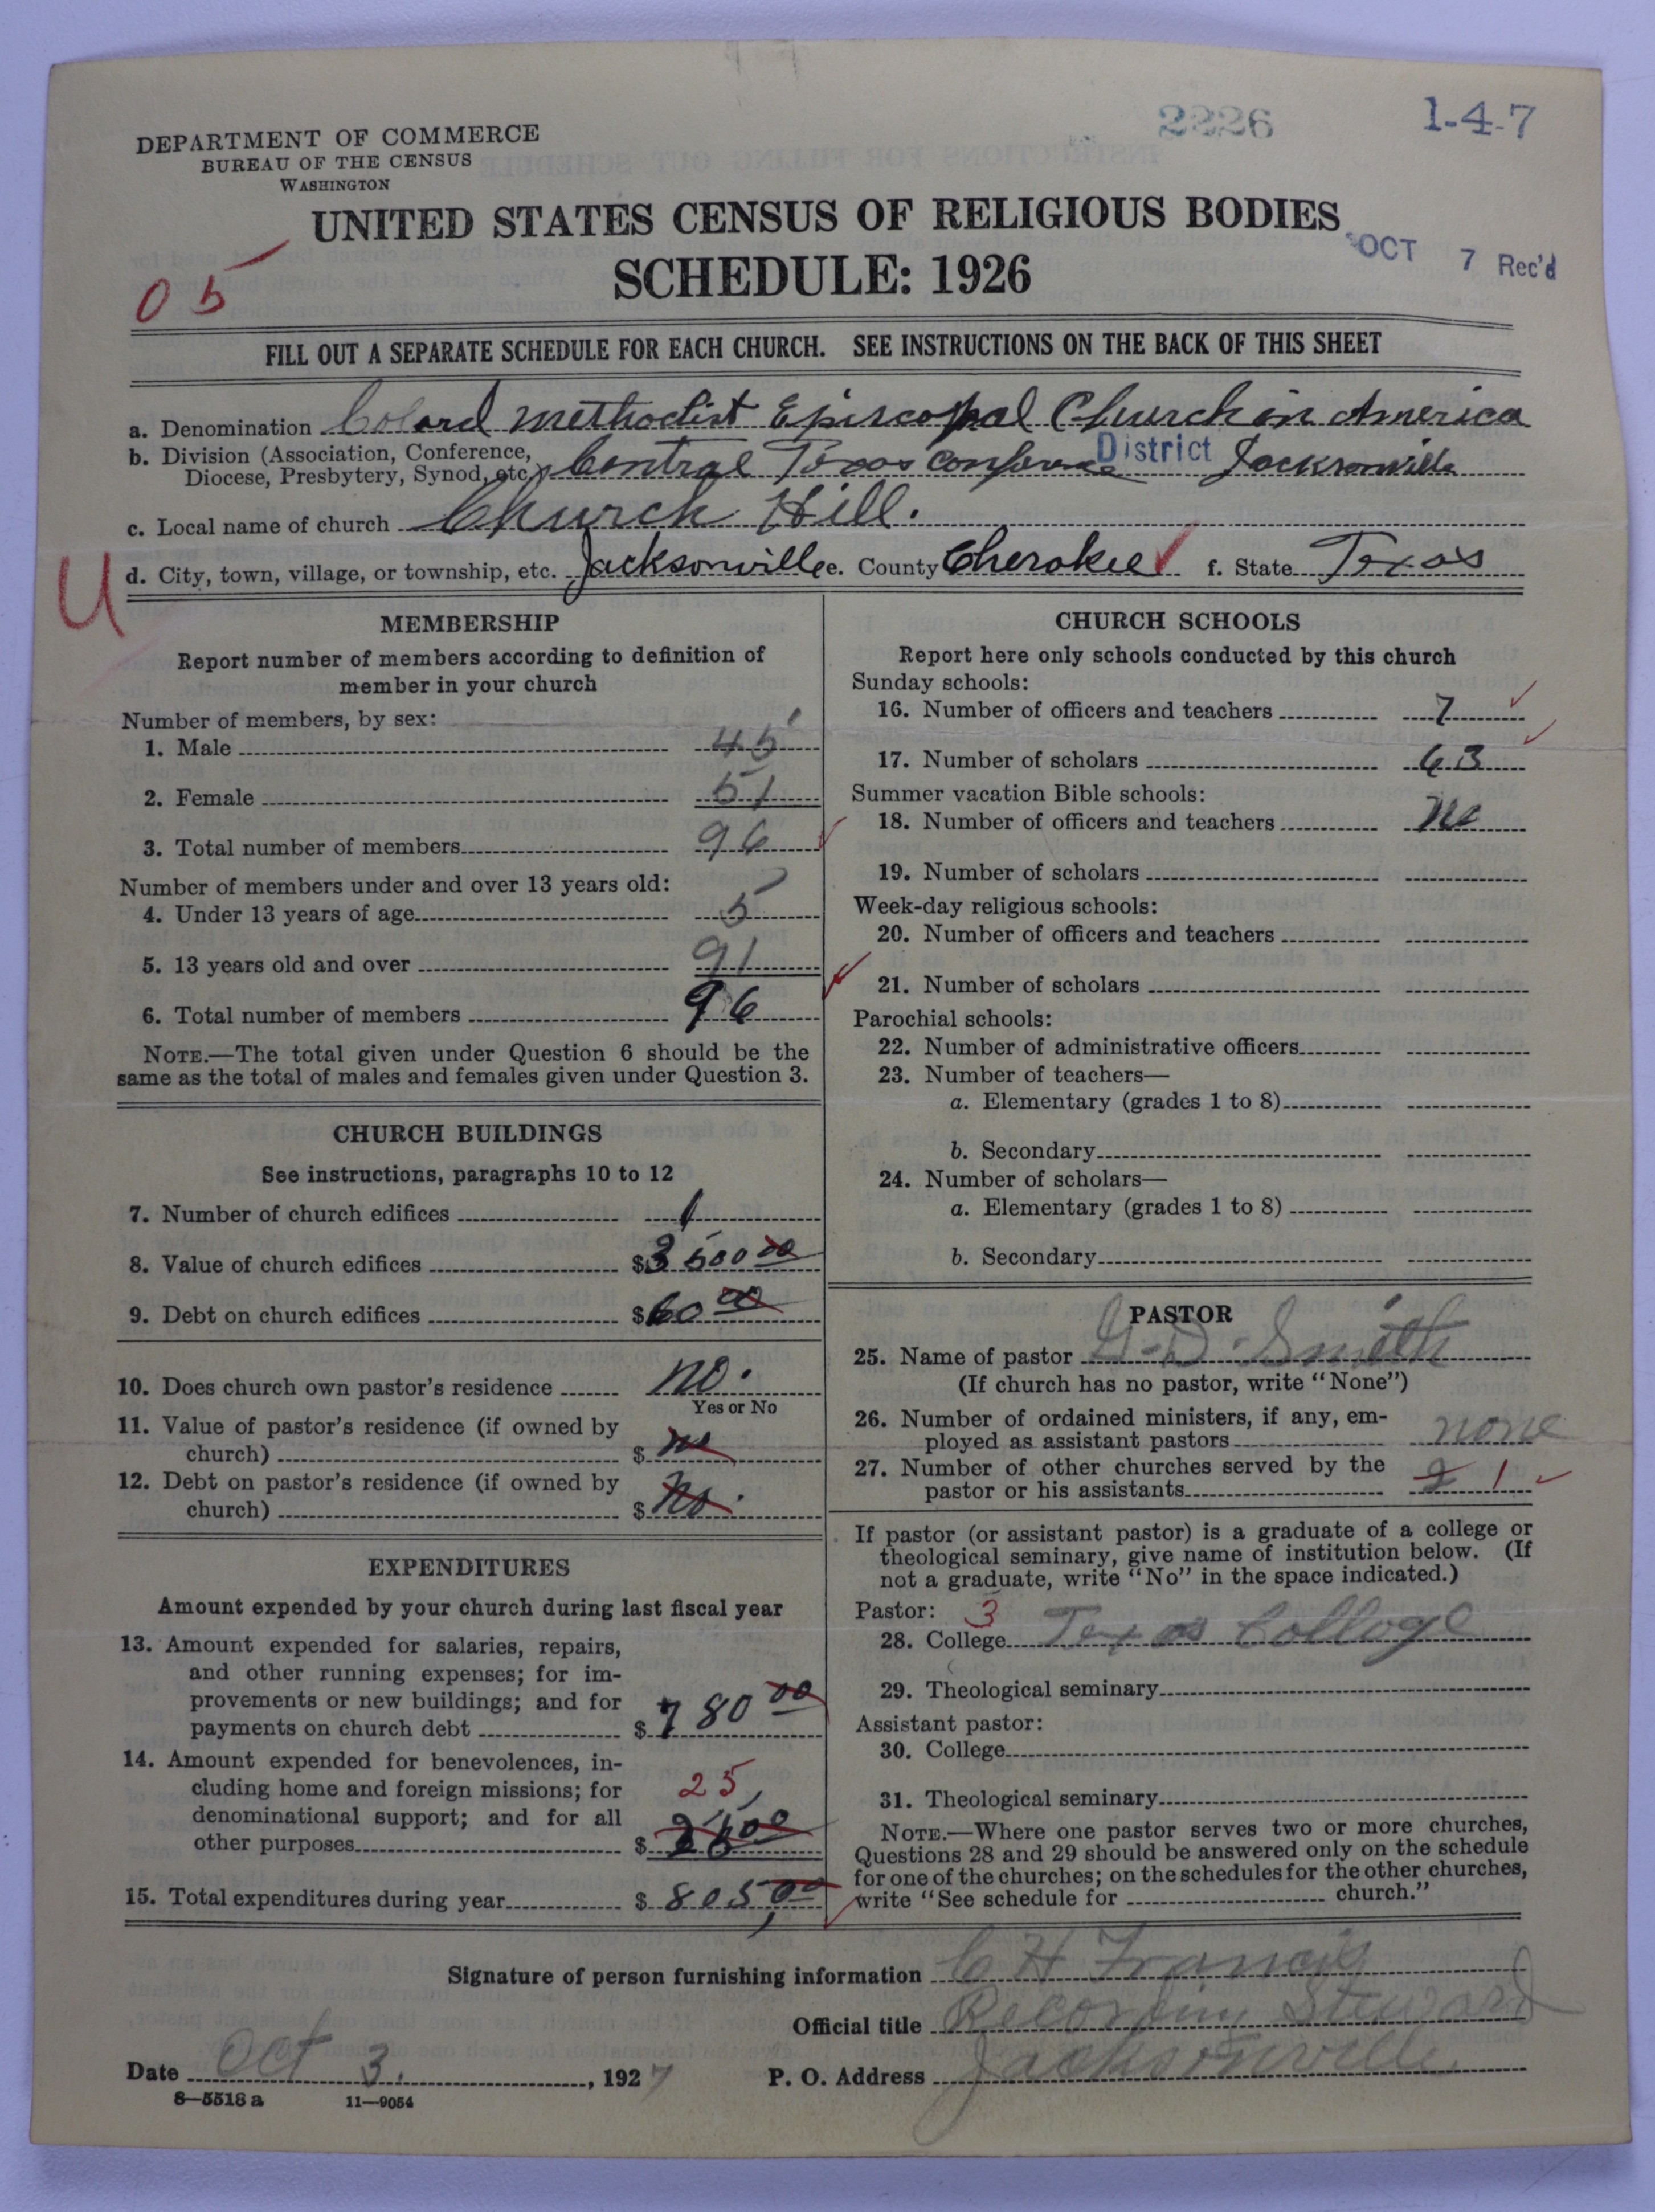 2226
1-4-7
DEPARTMENT OF COMMERCE
BUREAU OF THE CENSUS
WASHINGTON
UNITED STATES CENSUS OF RELIGIOUS BODIES
SCHEDULE: 1926
OCT 7 Rec'd
05
FILL OUT A SEPARATE SCHEDULE FOR EACH CHURCH. SEE INSTRUCTIONS ON THE BACK OF THIS SHEET
a. Denomination Colard Methodist Episcopal Church in America
b. Division (Association, Conference,
Diocese, Presbytery, Synod, etc.) Central Texas Conference District Jacksonville
c. Local name of church Church Hill.
U
d. City, town, village, or township, etc. Jacksonville e. County Cherokee f. State Texas
MEMBERSHIP
Report number of members according to definition of
member in your church
Number of members, by sex:
1. Male 45
2. Female 51
3. Total number of members 96
Number of members under and over 13 years old:
4. Under 13 years of age 5
5. 13 years old and over 91
6. Total number of members 96
NOTE.—The total given under Question 6 should be the
same as the total of males and females given under Question 3.
CHURCH BUILDINGS
See instructions, paragraphs 10 to 12
7. Number of church edifices 1
8. Value of church edifices $3500 00
9. Debt on church edifices $60 00
10. Does church own pastor's residence no.
Yes or No
11. Value of pastor's residence (if owned by
church) $ no
12. Debt on pastor's residence (if owned by
church) $ no.
EXPENDITURES
Amount expended by your church during last fiscal year
13. Amount expended for salaries, repairs,
and other running expenses; for im-
provements or new buildings; and for
payments on church debt $780 00
14. Amount expended for benevolences, in-
cluding home and foreign missions; for
25
denominational support; and for all
other purposes $ 25 00
15. Total expenditures during year $ 805,00
CHURCH SCHOOLS
Report here only schools conducted by this church
Sunday schools:
16. Number of officers and teachers 7
17. Number of scholars 63
Summer vacation Bible schools:
18. Number of officers and teachers no
19. Number of scholars
Week-day religious schools:
20. Number of officers and teachers
21. Number of scholars
Parochial schools:
22. Number of administrative officers
23. Number of teachers—
a. Elementary (grades 1 to 8)
b. Secondary
24. Number of scholars—
a. Elementary (grades 1 to 8)
b. Secondary
PASTOR
25. Name of pastor G. D. Smith
(If church has no pastor, write "None")
26. Number of ordained ministers, if any, em-
ployed as assistant pastors none
27. Number of other churches served by the
pastor or his assistants 2 1
If pastor (or assistant pastor) is a graduate of a college or
theological seminary, give name of institution below. (If
not a graduate, write "No" in the space indicated.)
Pastor: 3
28. College Texas College
29. Theological seminary
Assistant pastor:
30. College
31. Theological seminary
NOTE.—Where one pastor serves two or more churches,
Questions 28 and 29 should be answered only on the schedule
for one of the churches; on the schedules for the other churches,
write "See schedule for church."
Signature of person furnishing information C H Francis
Official title Recording Steward
Date Oct 3, 1927 P. O. Address Jacksonville
8—5518 a 11—9054